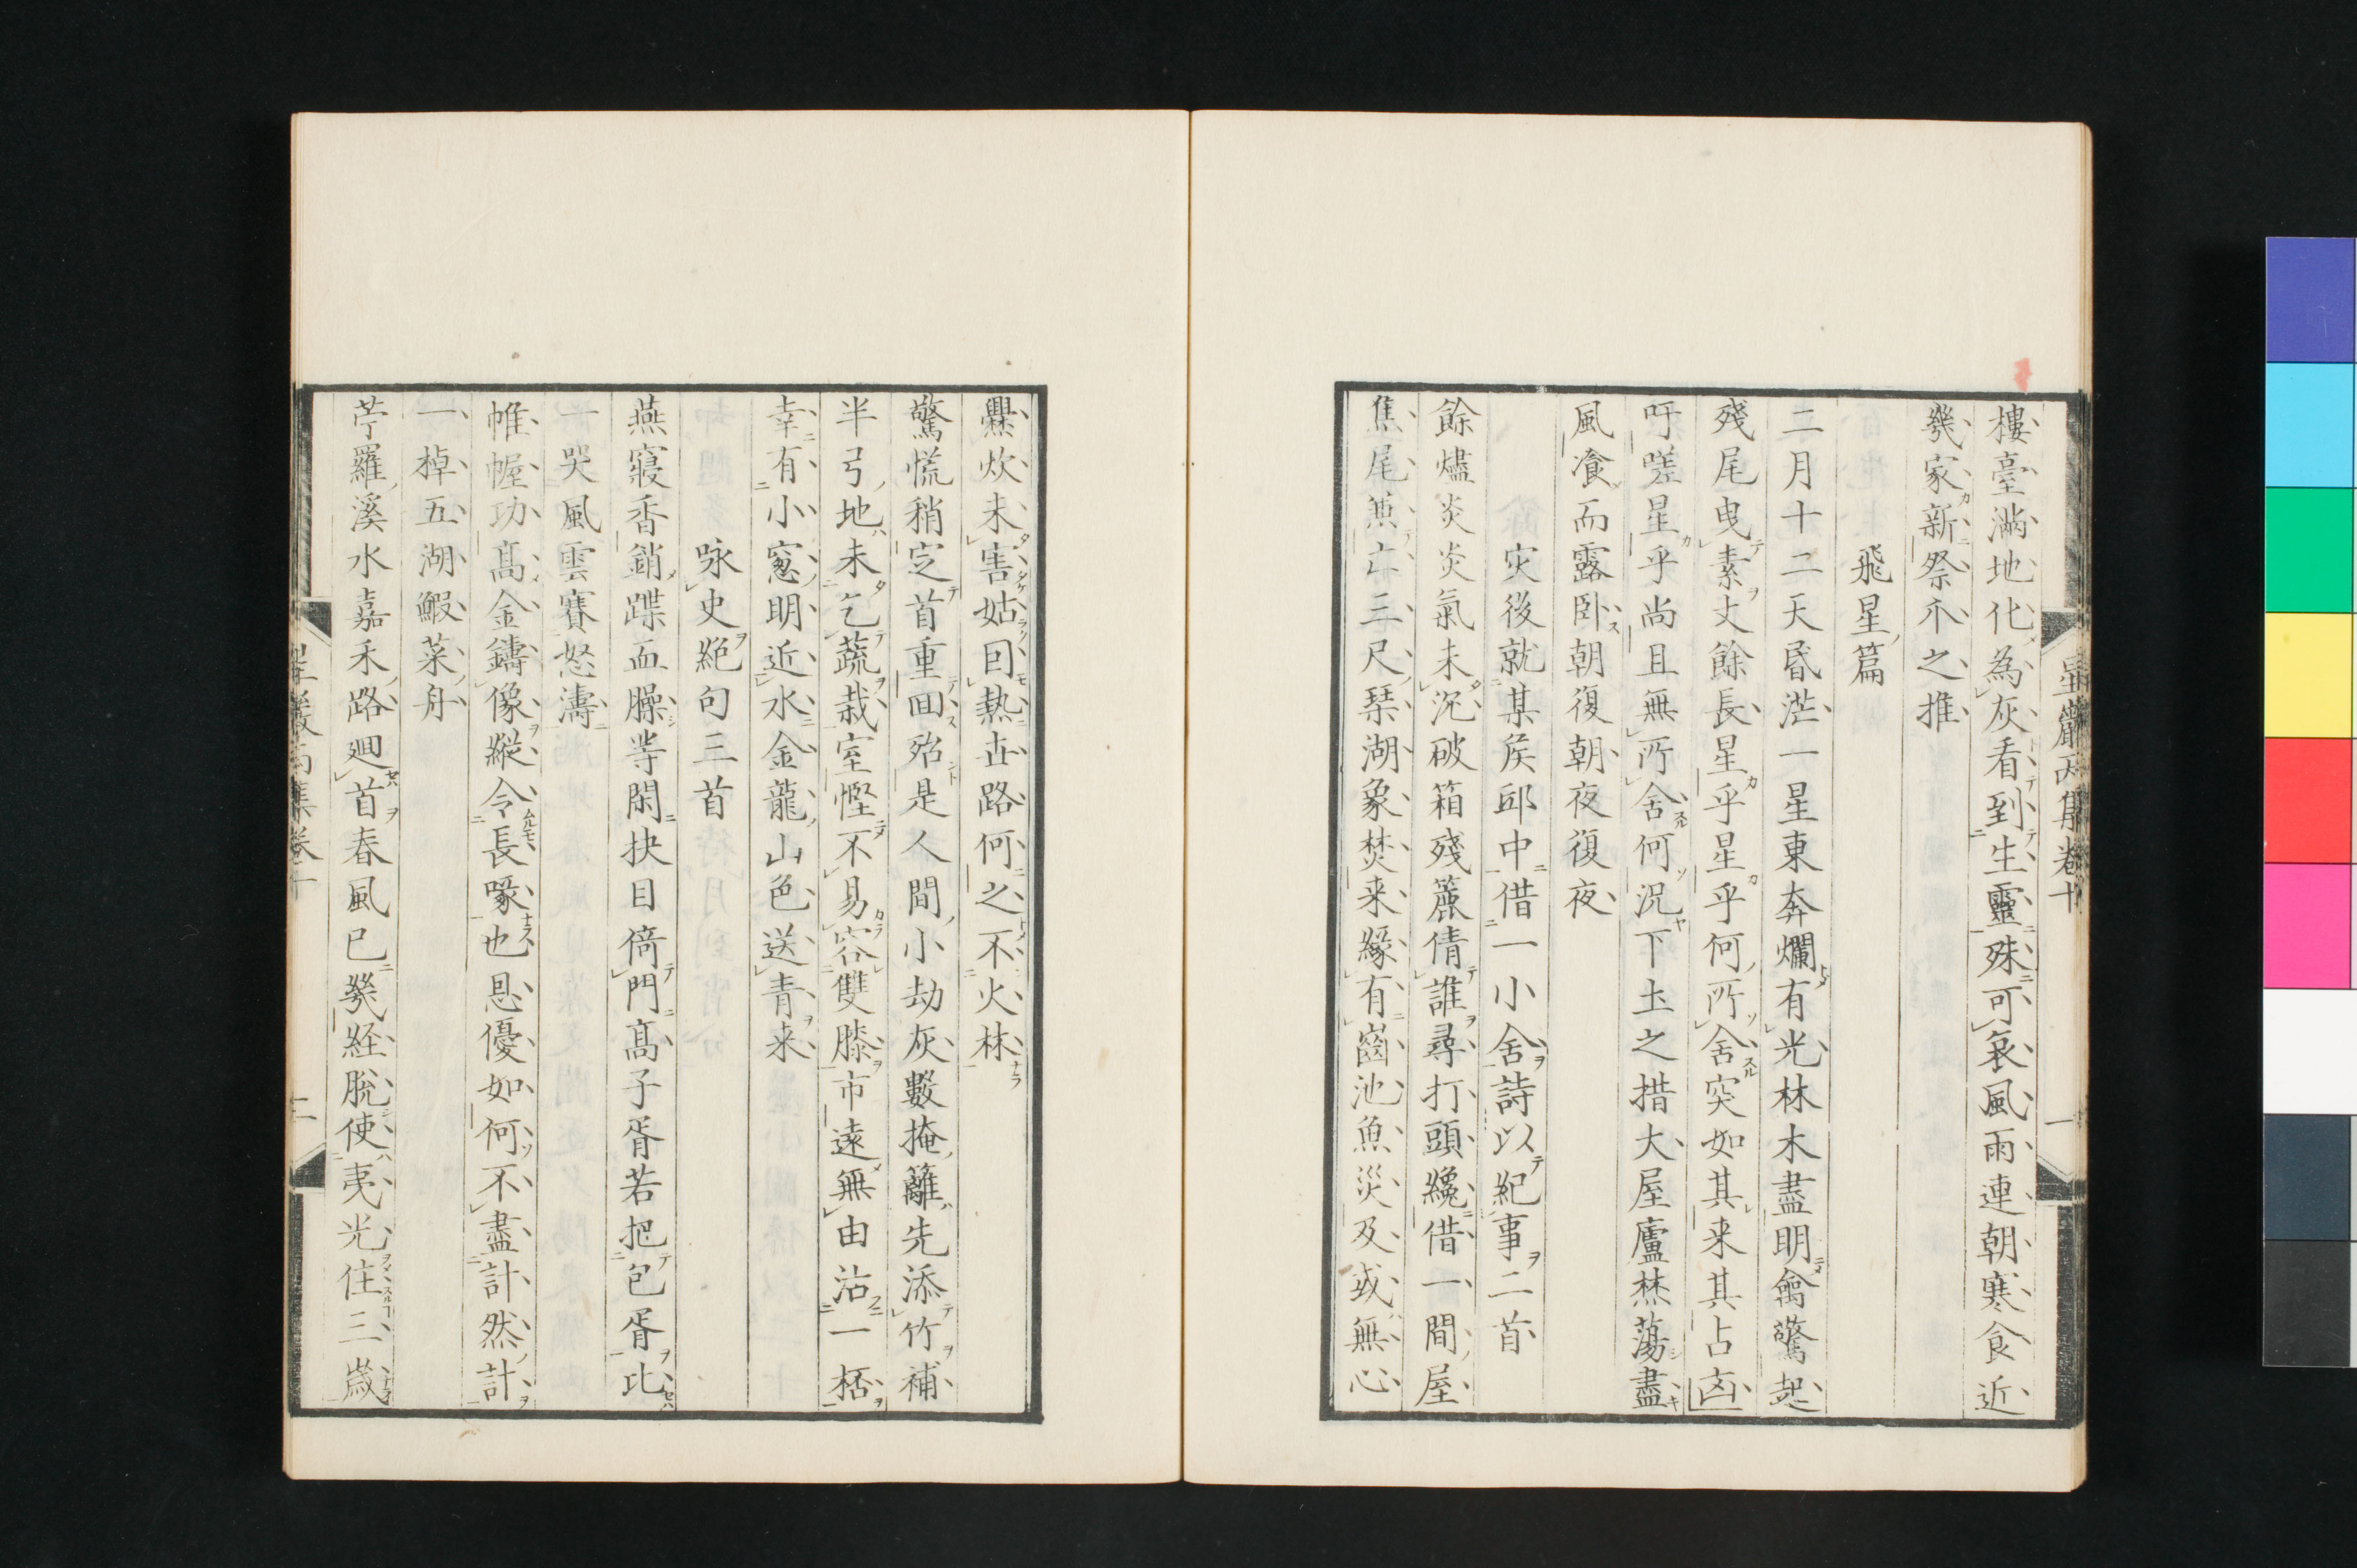 樓臺滿地化為灰看到生靈殊可哀風雨連朝寒食近
幾家新祭介之推
飛星篇
二月十二天昏茫一星東奔爛有光林木盡明禽驚起
殘尾曳素丈餘長星乎星乎何所舍突如其来其占凶
吁嗟星乎尚且無所舍何況下土之措大屋廬焚蕩盡
風飡而露臥朝復朝夜復夜
灾後就某矦邸中借一小舍詩以紀事二首
餘燼炎炎氣未沉破箱殘簏倩誰尋打頭纔借一間屋
焦尾蕙亡三尺琴湖象焚来緣有齒池魚災及或無心
爨炊未害姑因熱世路何之不火林
驚慌稍定首重回殆是人間小劫灰數掩籬先添竹補
半弓地未乞蔬栽室慳不易容雙膝市遠無由沽一桮
幸有小窻明近水金龍山色送青来
咏史絕句三首
燕寢香銷蹀血臊等閑抉目倚門髙子胥若把包胥比
一哭風雲賽怒濤
帷幄功髙金鑄像縱令長喙也恩優如何不盡計然計
一棹五湖鰕菜舟
苧羅溪水嘉禾路廻首春風已幾経脫使夷光住三歳
星巖丙集卷十
一
星巖丙集卷十
二